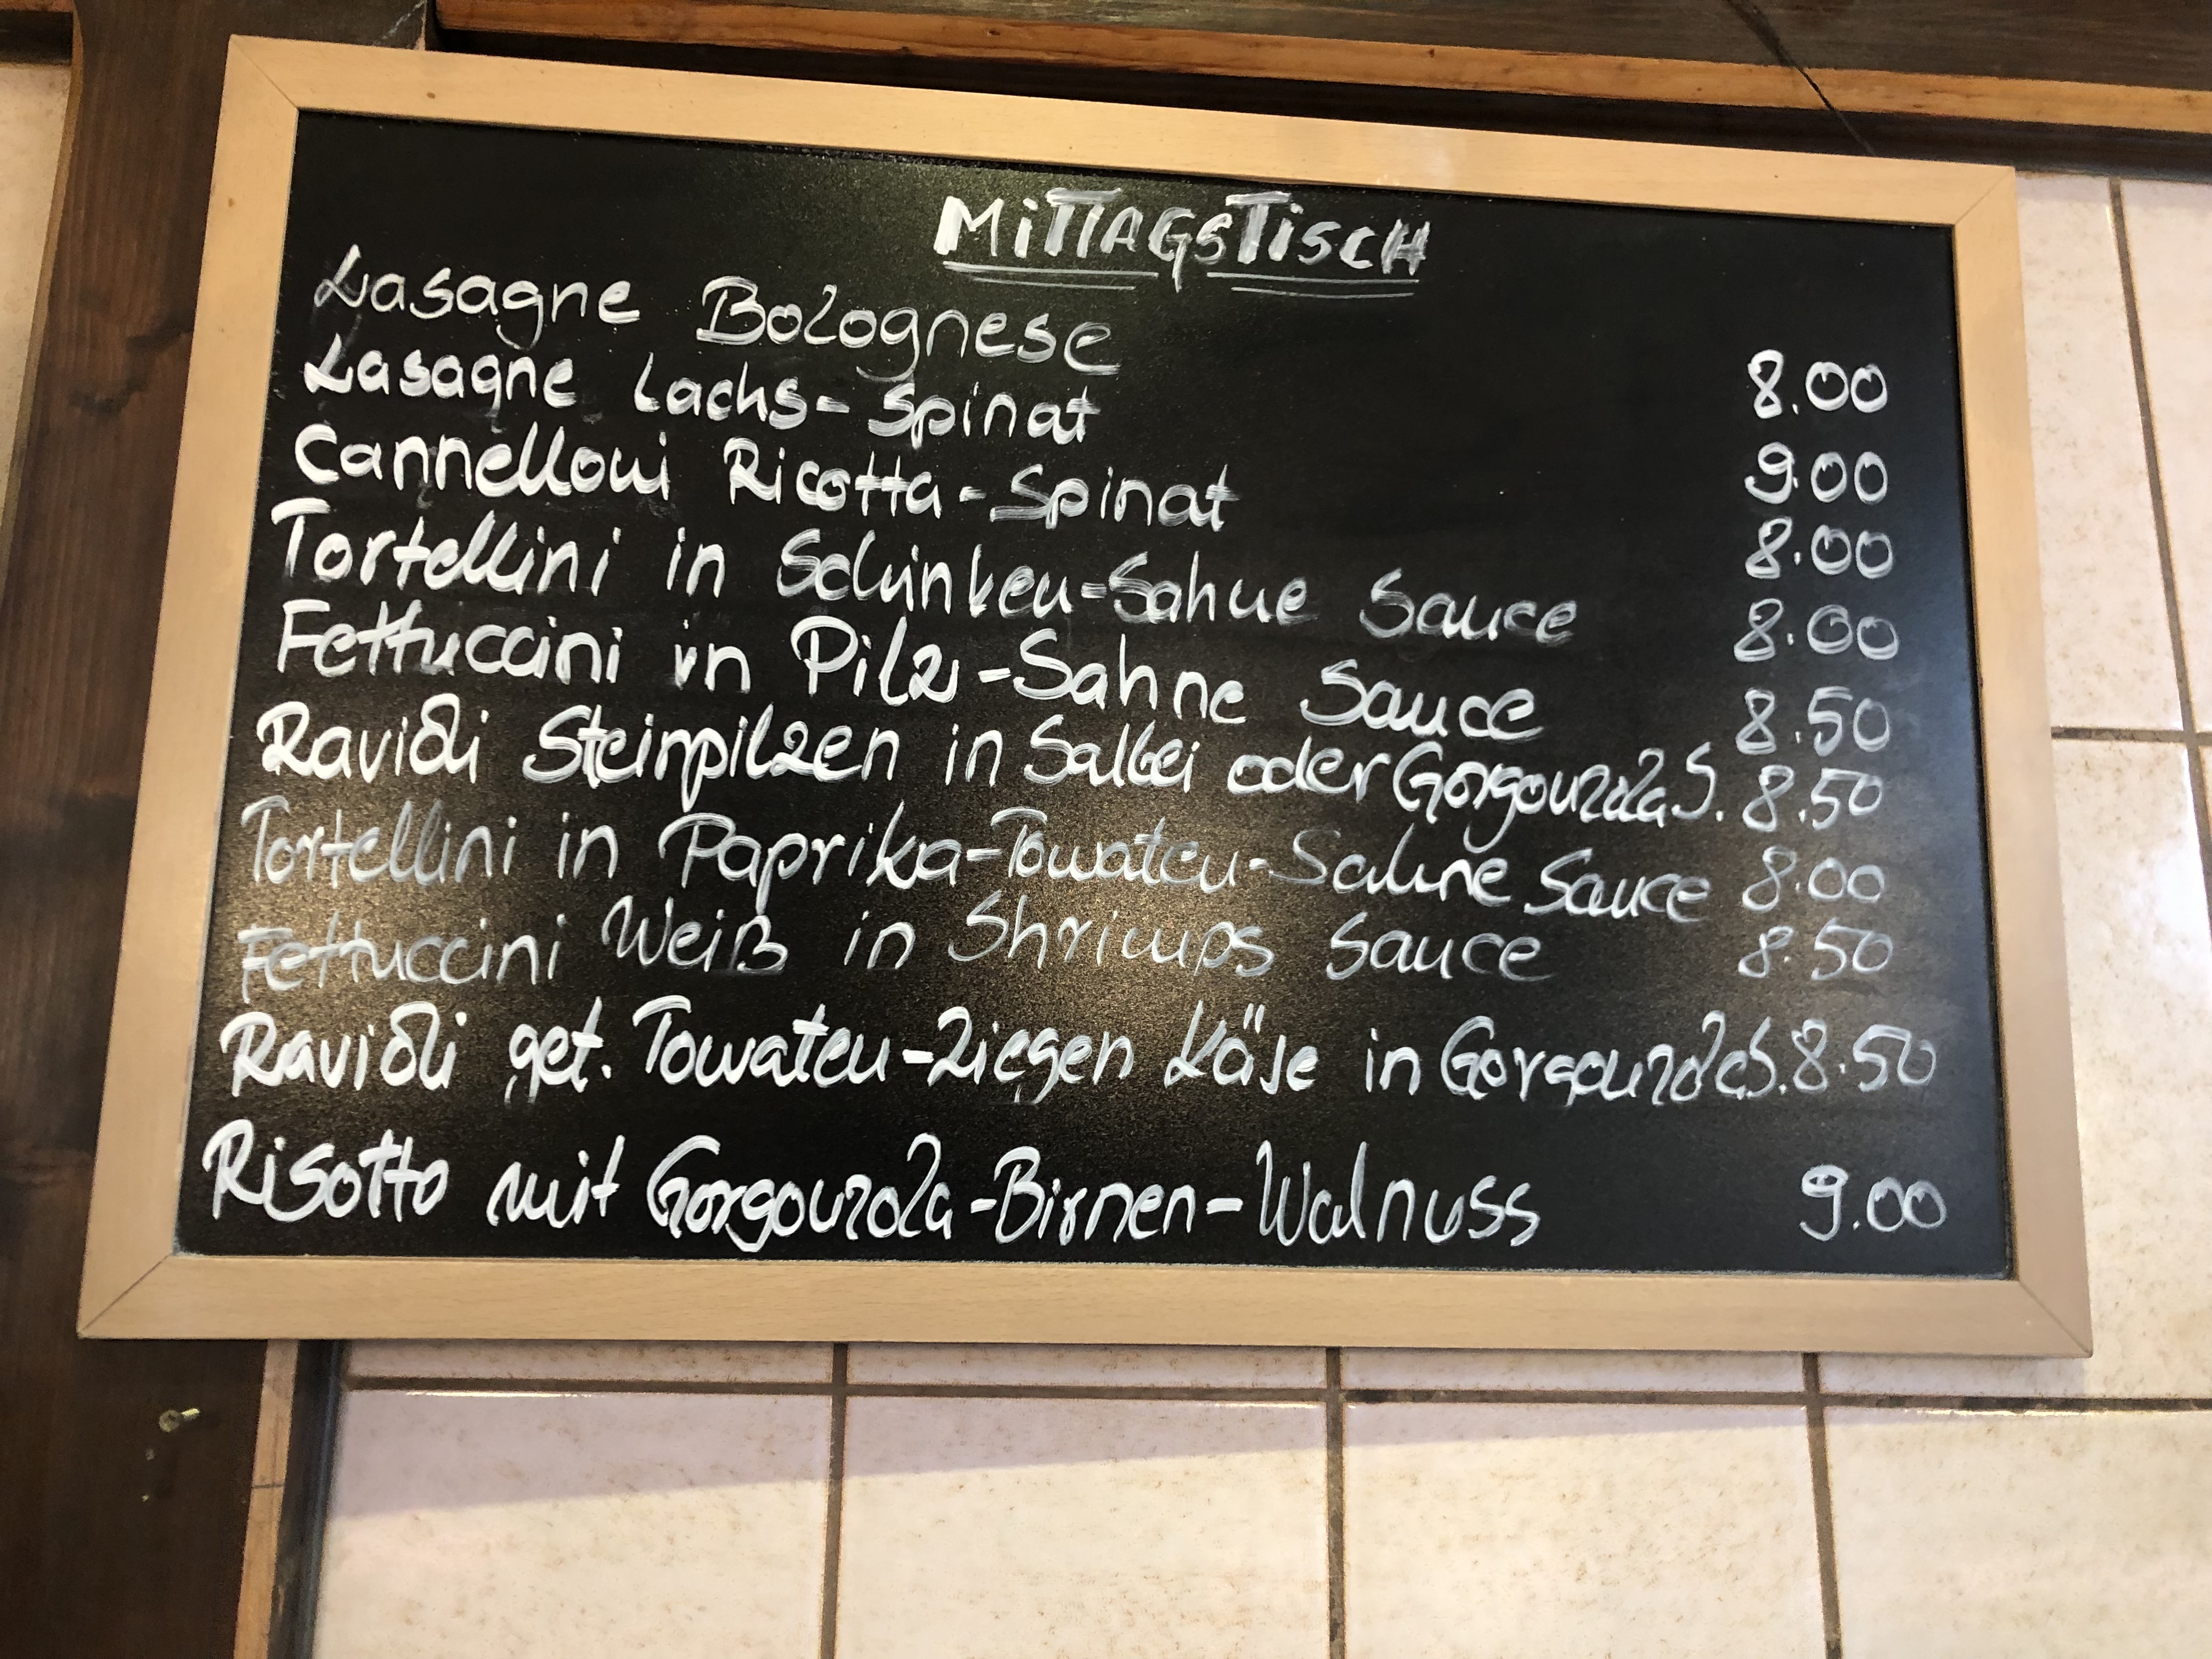 MITTAGSTISCH
Lasagne Bolognese 8.00
Lasagne Lachs-Spinat 9.00
Cannelloni Ricotta-Spinat 8.00
Tortellini in Schinken-Sahne Sauce 8.00
Fettuccini in Pilz-Sahne Sauce 8.50
Ravioli Steinpilzen in Salbei oder Gorgonzola S. 8.50
Tortellini in Paprika-Tomaten-Sahne Sauce 8.00
Fettuccini Weiß in Shrimps Sauce 8.50
Ravioli get. Tomaten-Ziegen Käse in Gorgonzola S. 8.50
Risotto mit Gorgonzola-Birnen-Walnuss 9.00